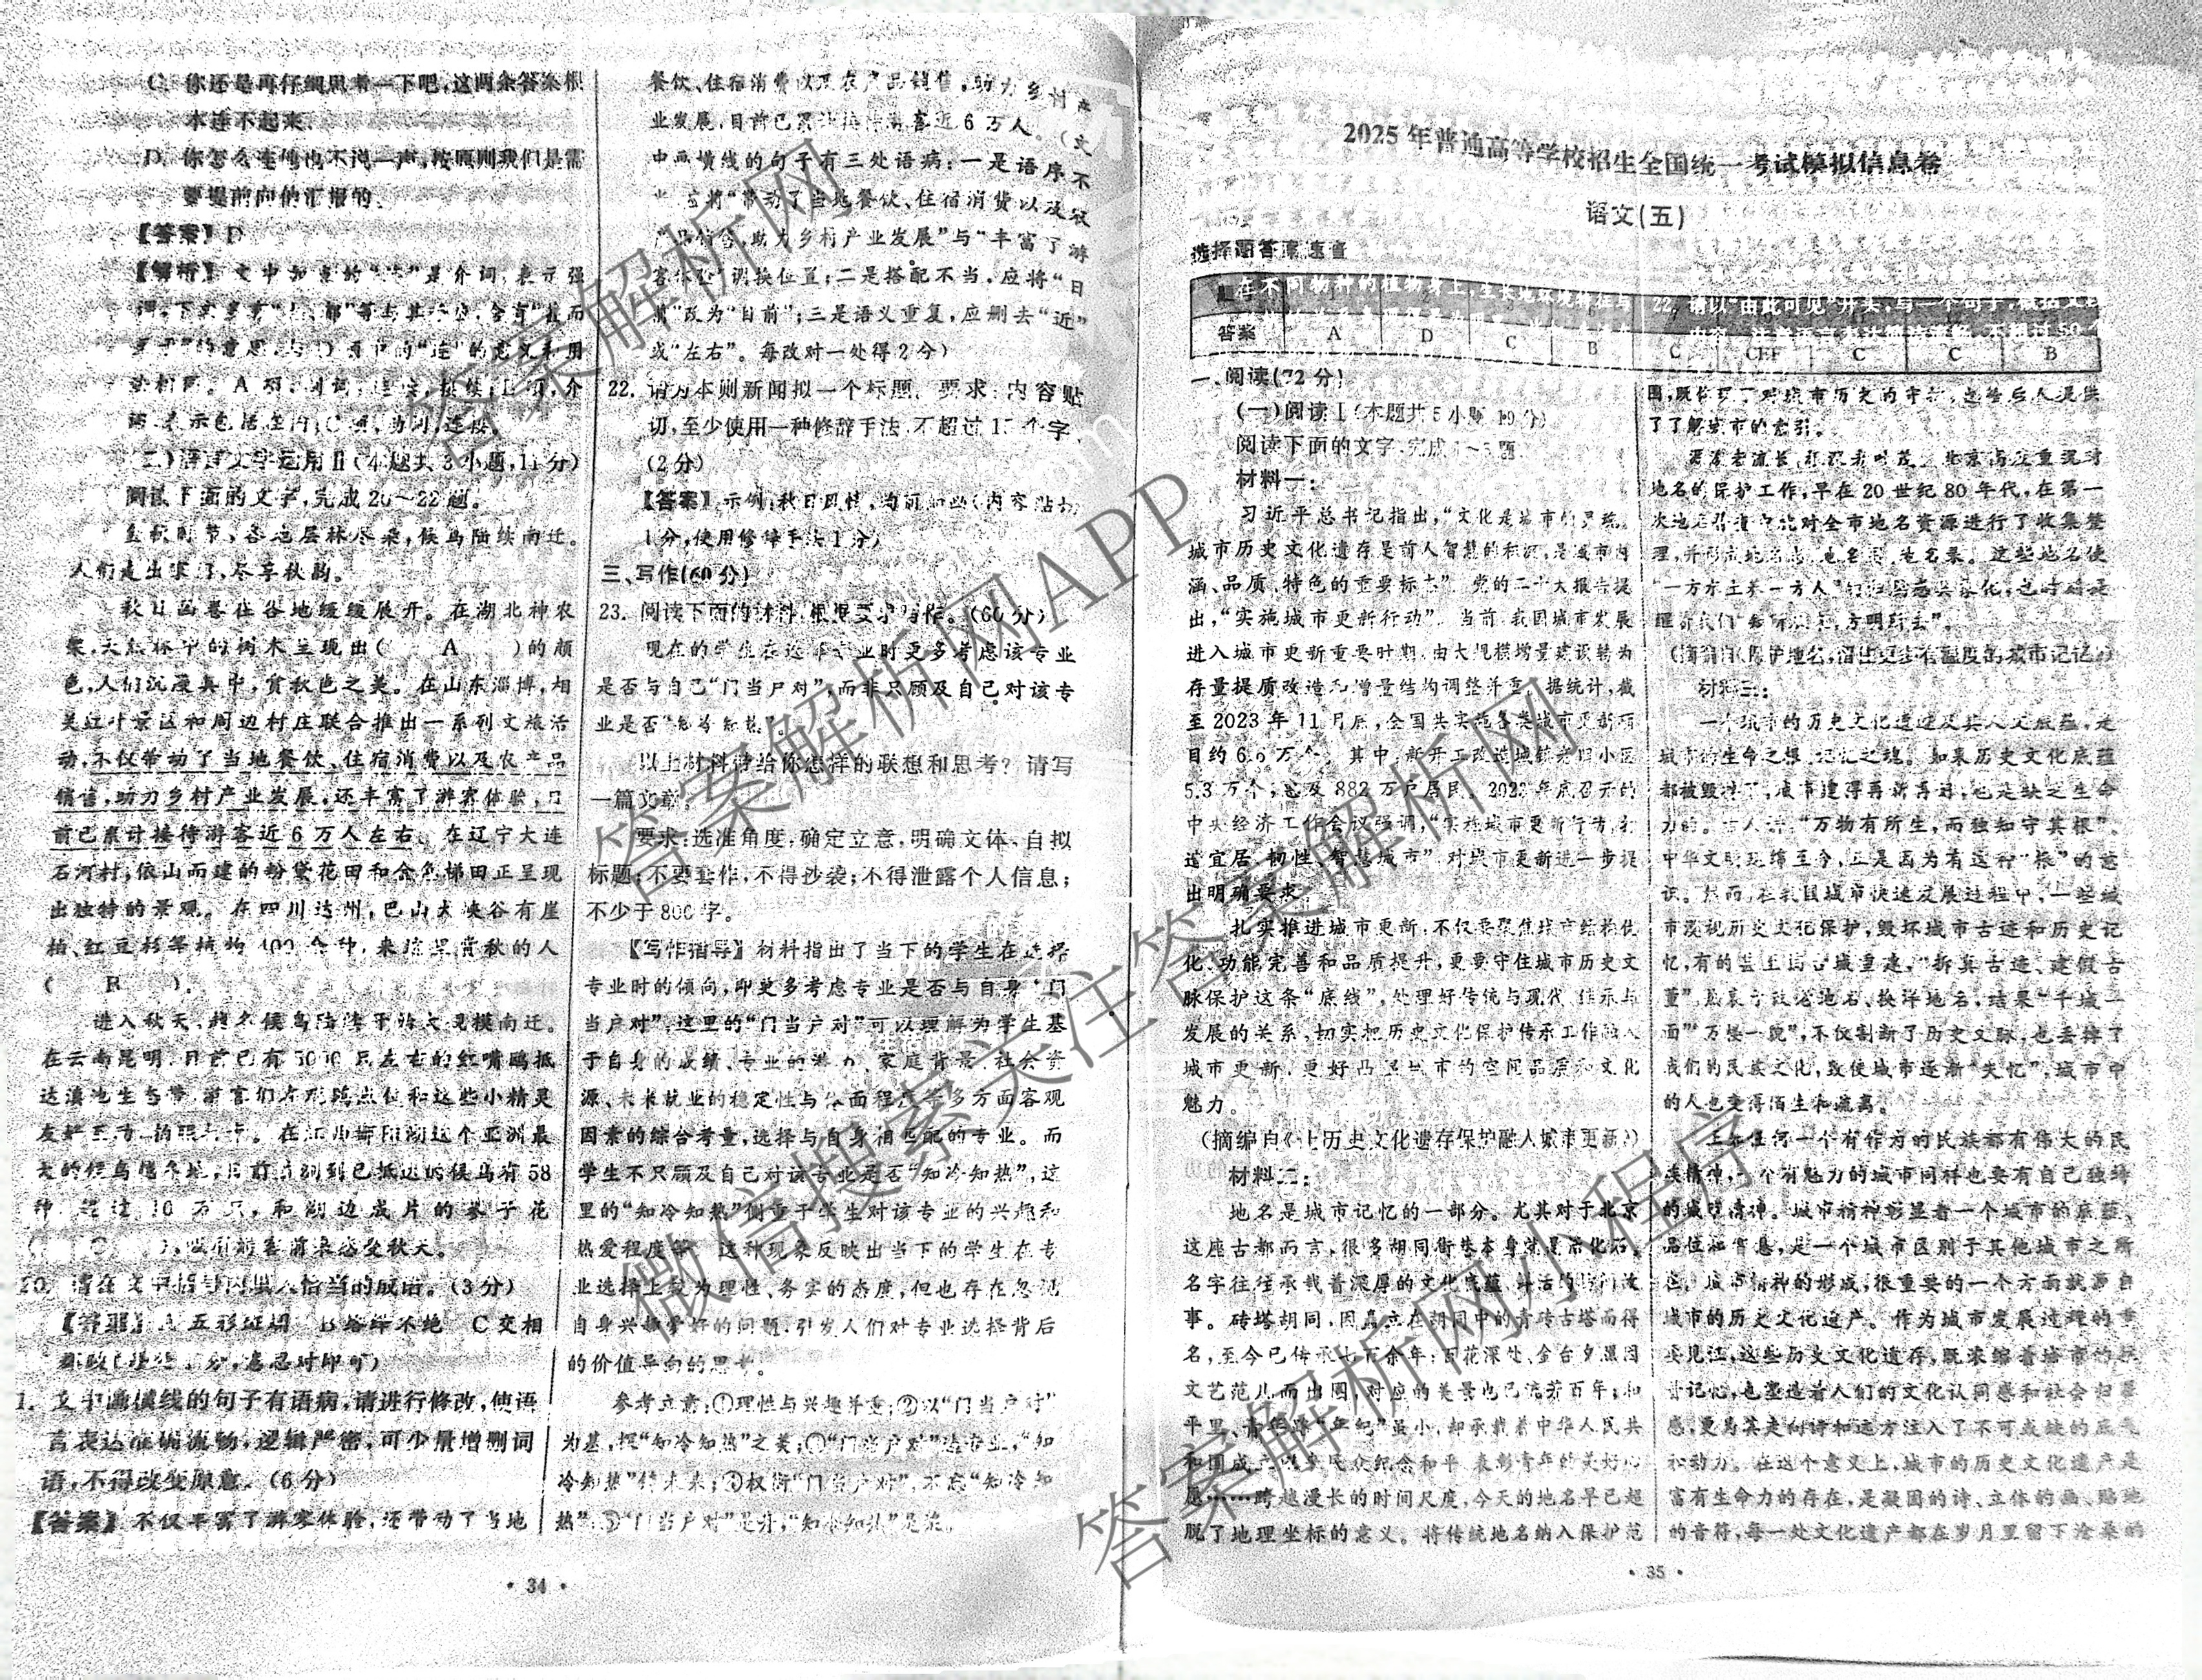 C. 你还是再仔细思考一下吧,这两条答案根
本连不起来。
D. 你怎么连他也不说一声,按原则我们是需
要提前向他汇报的。
【答案】D
【解析】文中加点的“连”是介词,表示强
法相同。A项,副词,连续,接续;B项,介
词,表示包括,在内;C项,动词,连接。
(二)语言文字运用Ⅱ(本题共3小题,11分)
阅读下面的文字,完成20~22题。
金秋时节,各地层林尽染,候鸟陆续南迁。
人们走出家门,尽享秋韵。
秋日画卷在各地缓缓展开。在湖北神农
架,大九湖中的树木呈现出( A )的颜
色,人们沉浸其中,赏秋色之美。在山东淄博,相
关红叶景区和周边村庄联合推出一系列文旅活
动,不仅带动了当地餐饮、住宿消费以及农产品
销售,助力乡村产业发展,还丰富了游客体验,日
前已累计接待游客近6万人左右。在辽宁大连
石河村,依山而建的粉黛花田和金色梯田正呈现
出独特的景观。在四川达州,巴山大峡谷有崖
柏、红豆杉等植物400余种,来这里赏秋的人
( B )。
进入秋天,越冬候鸟陆续开始大规模南迁。
在云南昆明,目前已有5000只左右的红嘴鸥抵
友好互动、拍照打卡。在江西鄱阳湖这个亚洲最
大的候鸟越冬地,目前监测到已抵达的候鸟有58
种,超过10万只,和湖边成片的蓼子花
( C ),吸引游客前来感受秋天。
20. 请在文中括号内填入恰当的成语。(3分)
【答案】A五彩斑斓 B络绎不绝 C交相
辉映(每处1分,意思对即可)
1. 文中画横线的句子有语病,请进行修改,使语
言表达准确流畅,逻辑严密,可少量增删词
语,不得改变原意。(6分)
【答案】不仅丰富了游客体验,还带动了当地
餐饮、住宿消费以及农产品销售,助力乡村产
业发展,目前已累计接待游客近6万人。(文
中画横线的句子有三处语病:一是语序不
当,应将“带动了当地餐饮、住宿消费以及农
产品销售,助力乡村产业发展”与“丰富了游
客体验”调换位置;二是搭配不当,应将“日
前”改为“目前”;三是语义重复,应删去“近”
或“左右”。每改对一处得2分)
22. 请为本则新闻拟一个标题。要求:内容贴
切,至少使用一种修辞手法,不超过15个字。
(2分)
【答案】示例:秋日风情,
1分,使用修辞手法1分)
三、写作(60分)
23. 阅读下面的材料,根据要求写作。(60分)
现在的学生在选择专业时更多考虑该专业
是否与自己“门当户对”,而非只顾及自己对该专
业是否“知冷知热”。
以上材料带给你怎样的联想和思考?请写
一篇文章。
要求:选准角度,确定立意,明确文体,自拟
标题;不要套作,不得抄袭;不得泄露个人信息;
不少于800字。
【写作指导】材料指出了当下的学生在选择
专业时的倾向,即更多考虑专业是否与自身“门
当户对”,这里的“门当户对”可以理解为学生基
于自身的成绩、专业的潜力、家庭背景、社会资
源、未来就业的稳定性与体面程度等多方面客观
因素的综合考量,选择与自身相匹配的专业。而
学生不只顾及自己对该专业是否“知冷知热”,这
里的“知冷知热”侧重于学生对该专业的兴趣和
热爱程度等。这种现象反映出当下的学生在专
业选择上较为理性、务实的态度,但也存在忽视
自身兴趣爱好的问题,引发人们对专业选择背后
的价值导向的思考。
参考立意:①理性与兴趣并重;②以“门当户对”
为基,探“知冷知热”之美;③“门当户对”选专业,“知
冷知热”待未来;④权衡“门当户对”,不忘“知冷知
热”;⑤“门当户对”是并,“知冷知热”是
· 34 ·
2025年普通高等学校招生全国统一考试模拟信息卷
语文(五)
选择题答案速查
在不同物种的植物身上,生长地环境特征与
22. 请以“由此可见”开头,写一个句子,概括文段
内容。注意语言表达简洁流畅,不超过50个
答案 A D C B C CEF C C B
一、阅读(72分)
(一)阅读Ⅰ(本题共5小题,19分)
阅读下面的文字,完成1~5题。
材料一:
习近平总书记指出,“文化是城市的灵魂。
城市历史文化遗存是前人智慧的积淀,是城市内
涵、品质、特色的重要标志”。党的二十大报告提
出,“实施城市更新行动”。当前,我国城市发展
进入城市更新重要时期,由大规模增量建设转为
存量提质改造和增量结构调整并重。据统计,截
至2023年11月底,全国共实施各类城市更新项
目约6.6万个。其中,新开工改造城镇老旧小区
5.3万个,惠及882万户居民。2023年底召开的
中央经济工作会议强调,“实施城市更新行动,打
造宜居、韧性、智慧城市”,对城市更新进一步提
出明确要求。
扎实推进城市更新,不仅要聚焦城市结构优
化、功能完善和品质提升,更要守住城市历史文
脉保护这条“底线”,处理好传统与现代、继承与
发展的关系,切实把历史文化保护传承工作融入
城市更新,更好凸显城市的空间品质和文化
魅力。
(摘编自《让历史文化遗存保护融入城市更新》)
材料二:
地名是城市记忆的一部分。尤其对于北京
这座古都而言,很多胡同街巷本身就是活化石。
名字往往承载着深厚的文化底蕴、鲜活的坊间故
事。砖塔胡同,因矗立在胡同中的青砖古塔而得
名,至今已传承七百余年;百花深处、金台夕照因
文艺范儿而出圈,对应的美景也已流芳百年;和
平里、青年路“年纪”虽小,却承载着中华人民共
和国成立以来民众纪念和平、表彰青年的美好心
愿……跨越漫长的时间尺度,今天的地名早已超
脱了地理坐标的意义。将传统地名纳入保护范
围,既体现了对城市历史的守护,也给后人提供
了了解城市的索引。
源深者流长,根深者叶茂。北京向来重视对
地名的保护工作,早在20世纪80年代,在第一
次地名普查中就对全市地名资源进行了收集整
理,并形成地名志、地名图、地名录。这些地名使
“一方水土养一方人”
(摘编自《保护地名,留住更多有温度的城市记忆》)
材料三:
一个城市的历史文化遗迹及其人文底蕴,是
城市的生命之根、记忆之魂。如果历史文化底蕴
都被毁掉了,城市建得再新再好,也是缺乏生命
力的。古人讲:“万物有所生,而独知守其根”。
中华文明延绵至今,正是因为有这种“根”的意
识。然而,在我国城市快速发展过程中,一些城
市漠视历史文化保护,毁坏城市古迹和历史记
忆,有的甚至搞古城重建,“拆真古迹、建假古
董”,热衷于改老地名、换洋地名,结果“千城一
面”“万楼一貌”,不仅割断了历史文脉,也丢掉了
我们的民族文化,致使城市逐渐“失忆”,城市中
的人也变得陌生和疏离。
正如任何一个有作为的民族都有伟大的民
族精神,一个有魅力的城市同样也要有自己独特
的城市精神。城市精神彰显着一个城市的底蕴、
品位和气息,是一个城市区别于其他城市之所
在。城市精神的形成,很重要的一个方面就来自
城市的历史文化遗产。作为城市发展过程的重
要见证,这些历史文化遗存,既浓缩着城市的探
寻记忆,也塑造着人们的文化认同感和社会归属
感,更为其走向诗和远方注入了不可或缺的底气
和动力。在这个意义上,城市的历史文化遗产是
富有生命力的存在,是凝固的诗、立体的画、贴地
的音符,每一处文化遗产都在岁月里留下沧桑的
· 35 ·
答案解析网
答案解析网APP
微信搜索关注答案解析网
答案解析网小程序